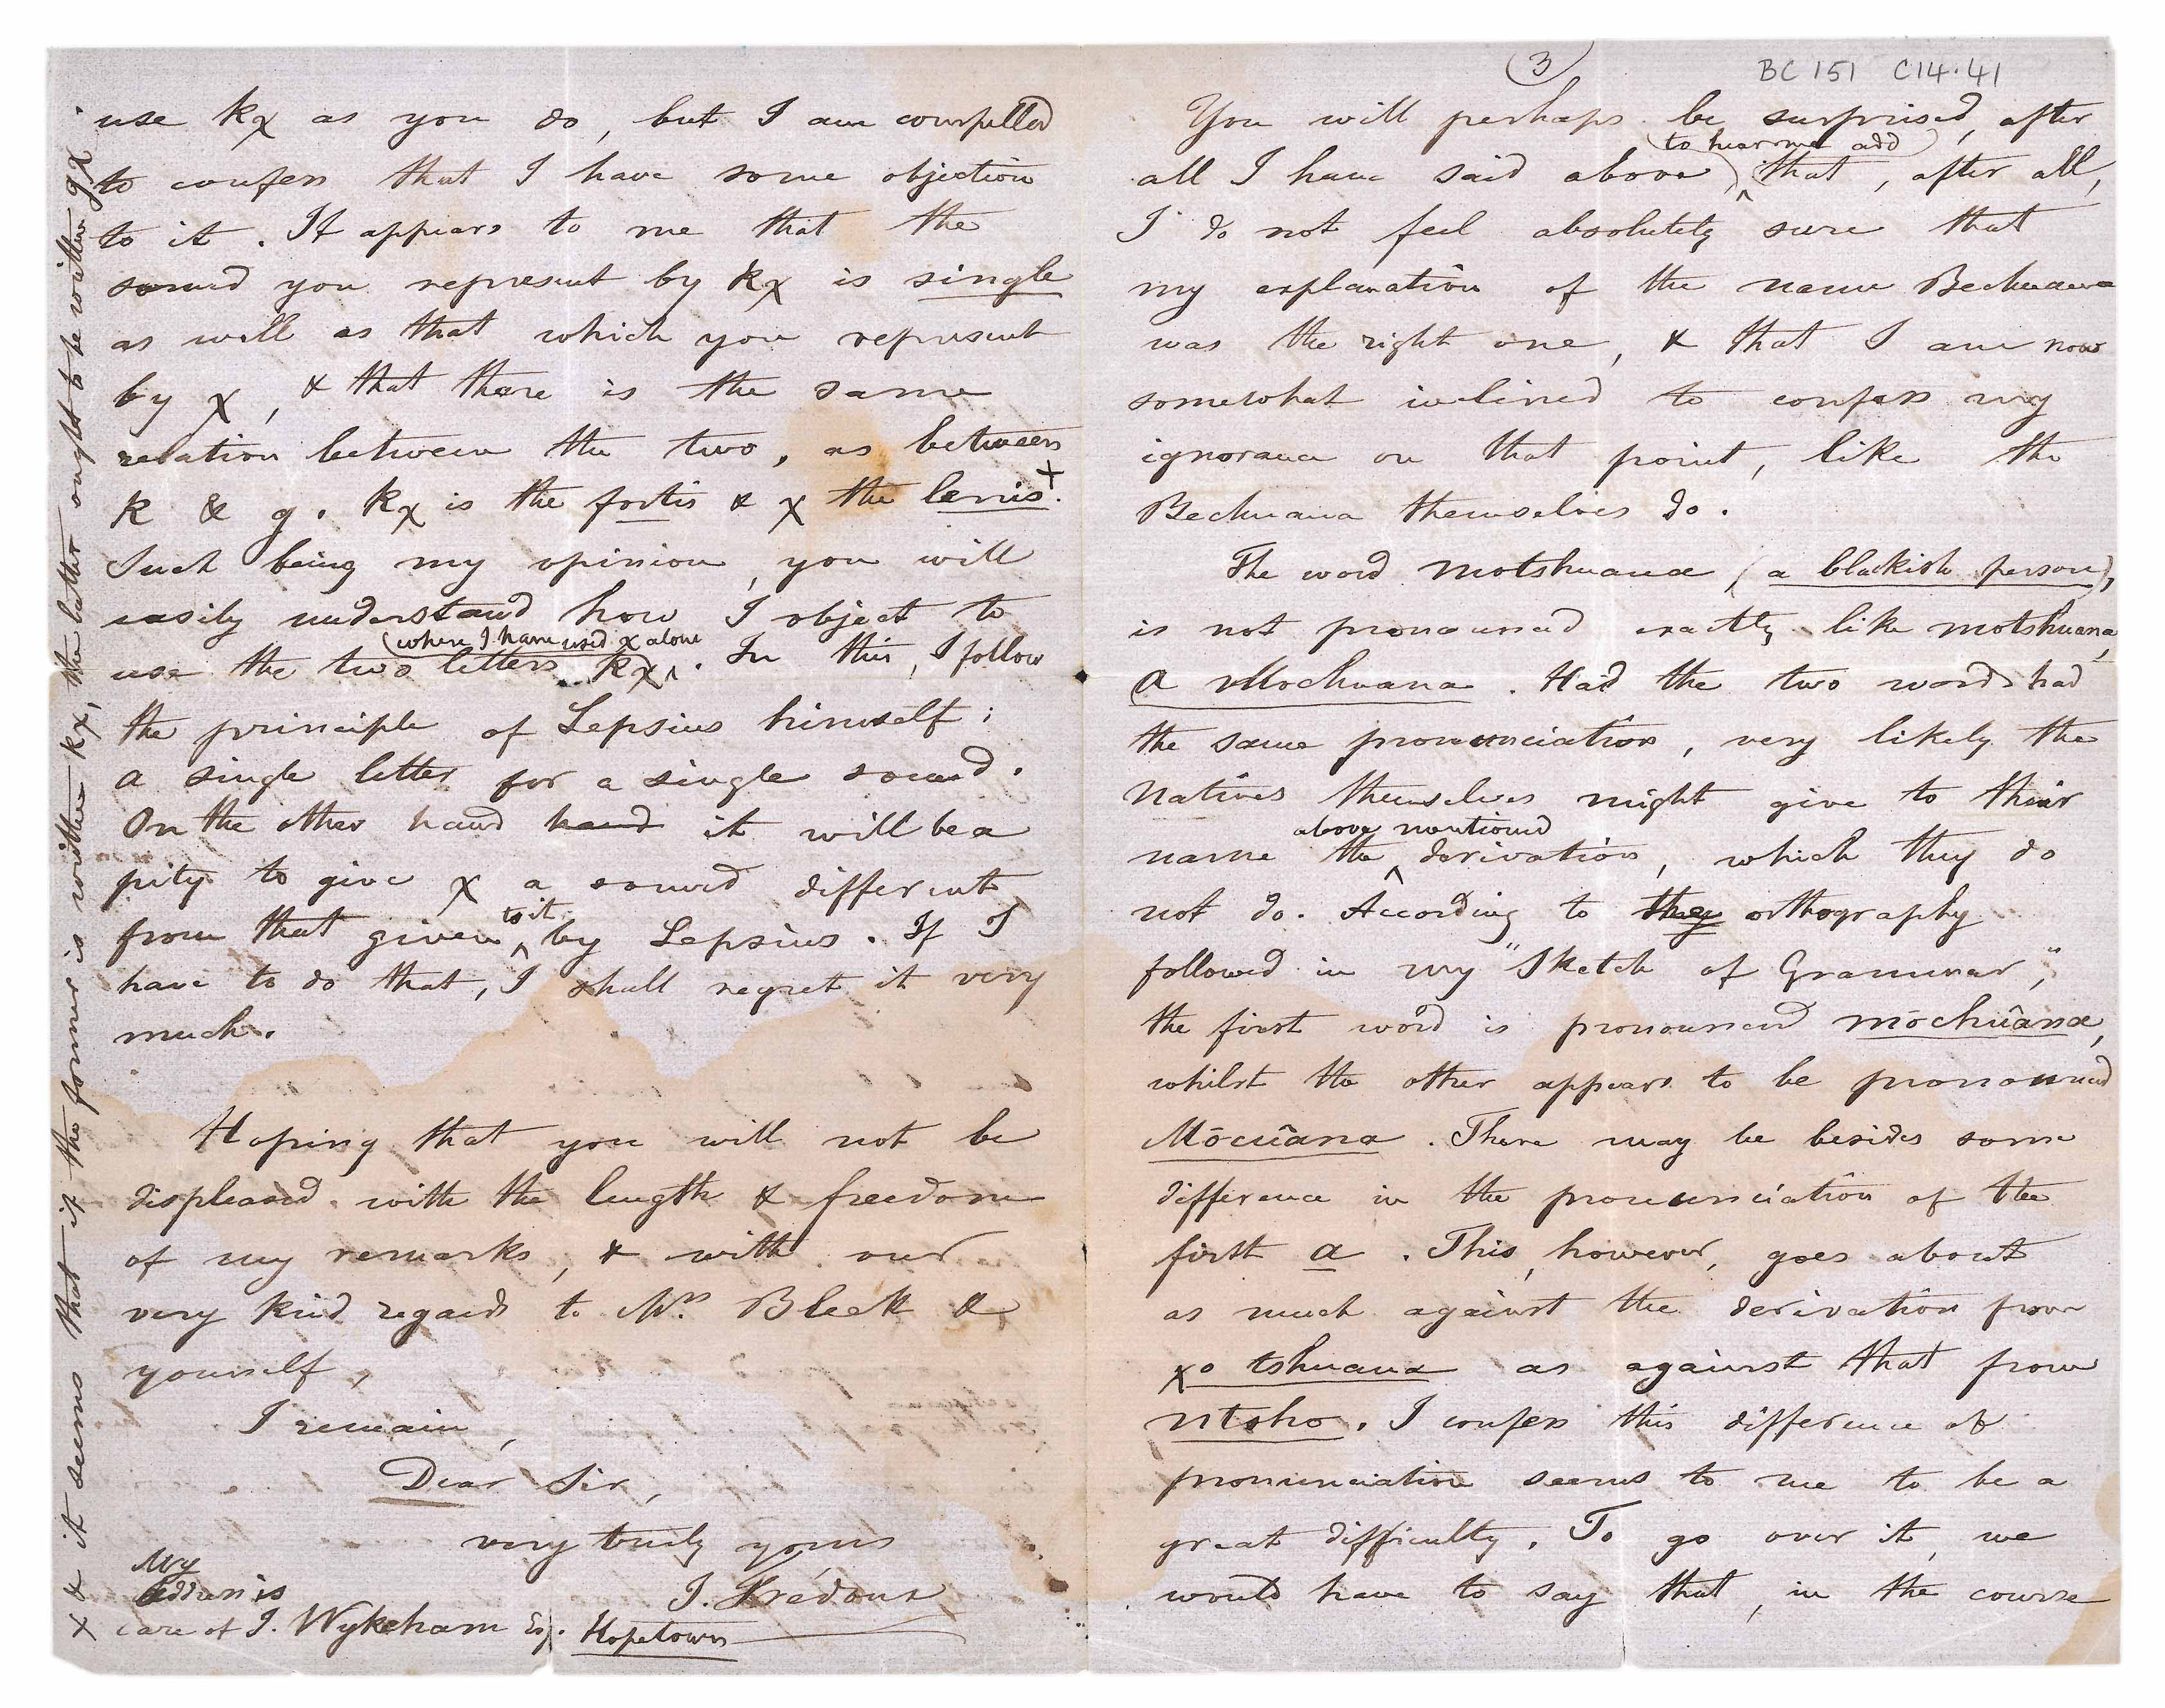 use kχ as you do, but I am compelled
to confess that I have some objection
to it. It appears to me that the
sound you represent by kχ is single
as well as that which you represent
by χ, & that there is the same
relation between the two, as between
k & g. kχ is the fortis & χ the lenis.+
Such being my opinion, you will
easily understand how I object to
(where I have used χ alone
use the two letters kχ. In this, I follow
the principle of Lepsius himself:
a single letter for a single sound.
On the other hand hand it will be a
pity to give χ a sound different
to it
from that given by Lepsius. If I
have to do that, I shall regret it very
much.
Hoping that you will not be
displeased with the length & freedom
of my remarks, & with our
very kind regards to Mrs. Bleek &
yourself,
I remain,
Dear Sir,
very truly yours
J. Frédoux
My
address is
care of J. Wykeham Esq. Hopetown
+ & it seems that if the former is written kχ, the latter ought to be written gχ.
(3)
BC 151 C14.41
You will perhaps be surprised, after
(to hear me add)
all I have said above) that, after all,
I do not feel absolutely sure that
my explanation of the name Bechuana
was the right one, & that I am now
somewhat inclined to confess my
ignorance on that point, like the
Bechuana themselves do.
The word motshuana (a blackish person),
is not pronounced exactly like motshuana,
a Mochuana. Had the two words had
the same pronunciation, very likely the
natives themselves might give to their
above mentioned
name the derivation, which they do
not do. According to they orthography
followed in my "Sketch of Grammar",
the first word is pronounced mōchûana,
whilst the other appears to be pronounced
Mōcuâna. There may be besides some
difference in the pronunciation of the
first a. This, however, goes about
as much against the derivation from
χo tshuana as against that from
ntsho. I confess this difference of
pronunciation seems to me to be a
great difficulty. To go over it, we
would have to say that, in the course